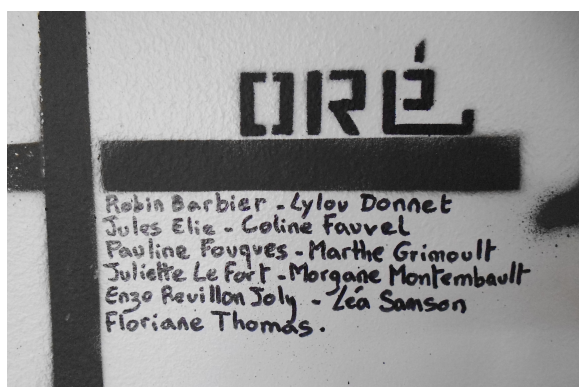 ORÉ
Robin Barbier - Lylou Donnet
Jules Elie - Coline Fauvel
Pauline Fouques - Marthe Grimoult
Juliette Le Fort - Morgane Montembault
Enzo Revillon Joly - Léa Samson
Floriane Thomas.